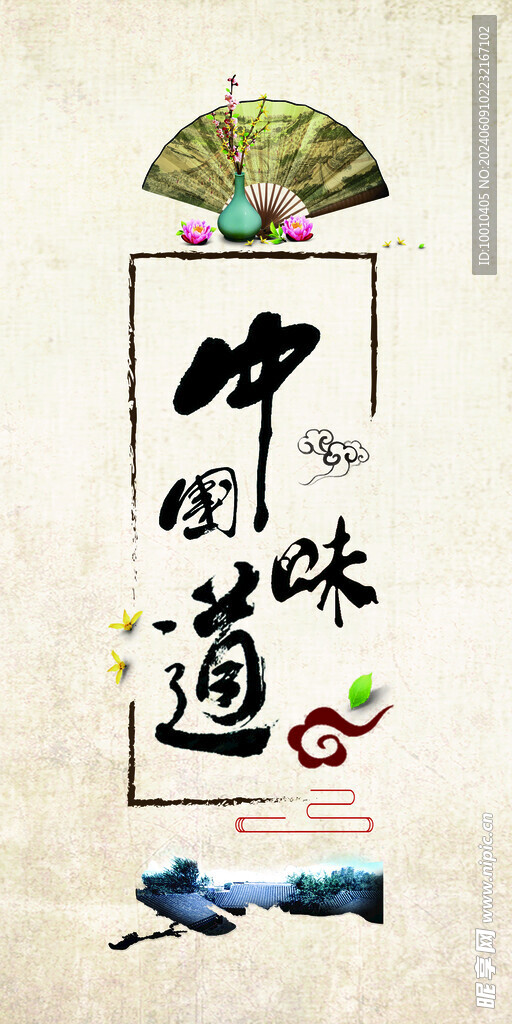 中国味道
ID:10010405 NO:20240609102232167102
昵享网 www.nipic.cn